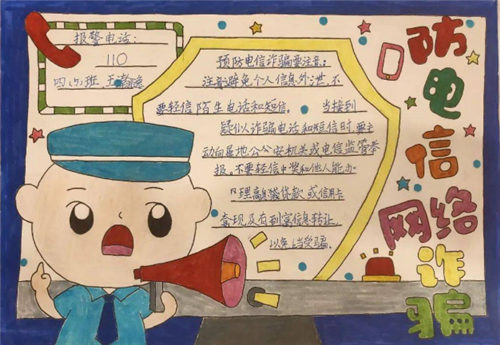 报警电话:
110
四(3)班 王
预防电信诈骗要注意:
注意避免个人信息外泄,不
要轻信陌生电话和短信。当接到
疑似诈骗电话和短信时,要主
动向属地公安机关或电信监管举
报,不要轻信中奖和他人能办
理 贷款或信用卡
套现及有刑案信息转让,
以免受骗。
防电信
网络
诈骗